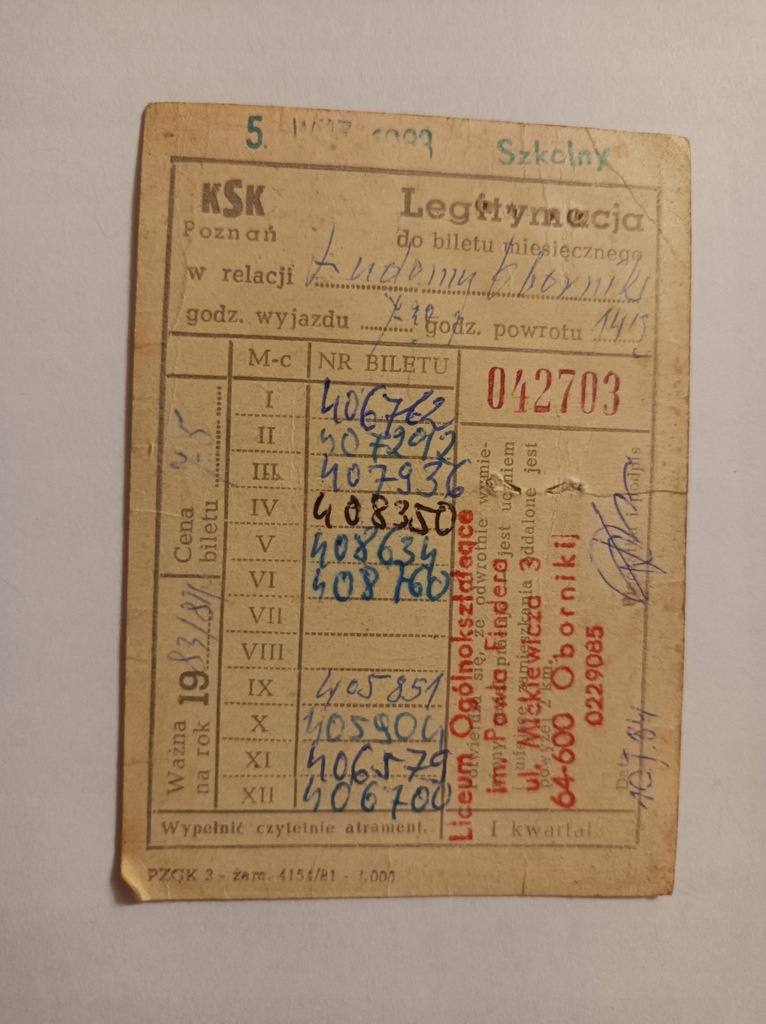 5. 1983 Szkolny
KSK
Poznań
Legitymacja
do biletu miesięcznego
w relacji Ludomy Oborniki
godz. wyjazdu godz. powrotu 14 15
M-c NR BILETU
042703
I 406762
II 407292
III 407936
IV 408350
V 408634
VI 408760
VII
VIII
IX 405851
X 405904
XI 406579
XII 406700
Cena biletu 75
Ważna na rok 1983/84
Stwierdza się, że odwrotnie wymie-
jest uczniem
zamieszkania oddalone jest
powyżej 2 km.
Liceum Ogólnokształcące
im. Pawła Findera
ul. Mickiewicza 3
64-600 Oborniki
0229085
Data 10.1.84
podpis
Wypełnić czytelnie atrament.
I kwartał
PZGK 3 - zam. 4154/81 - 1.000